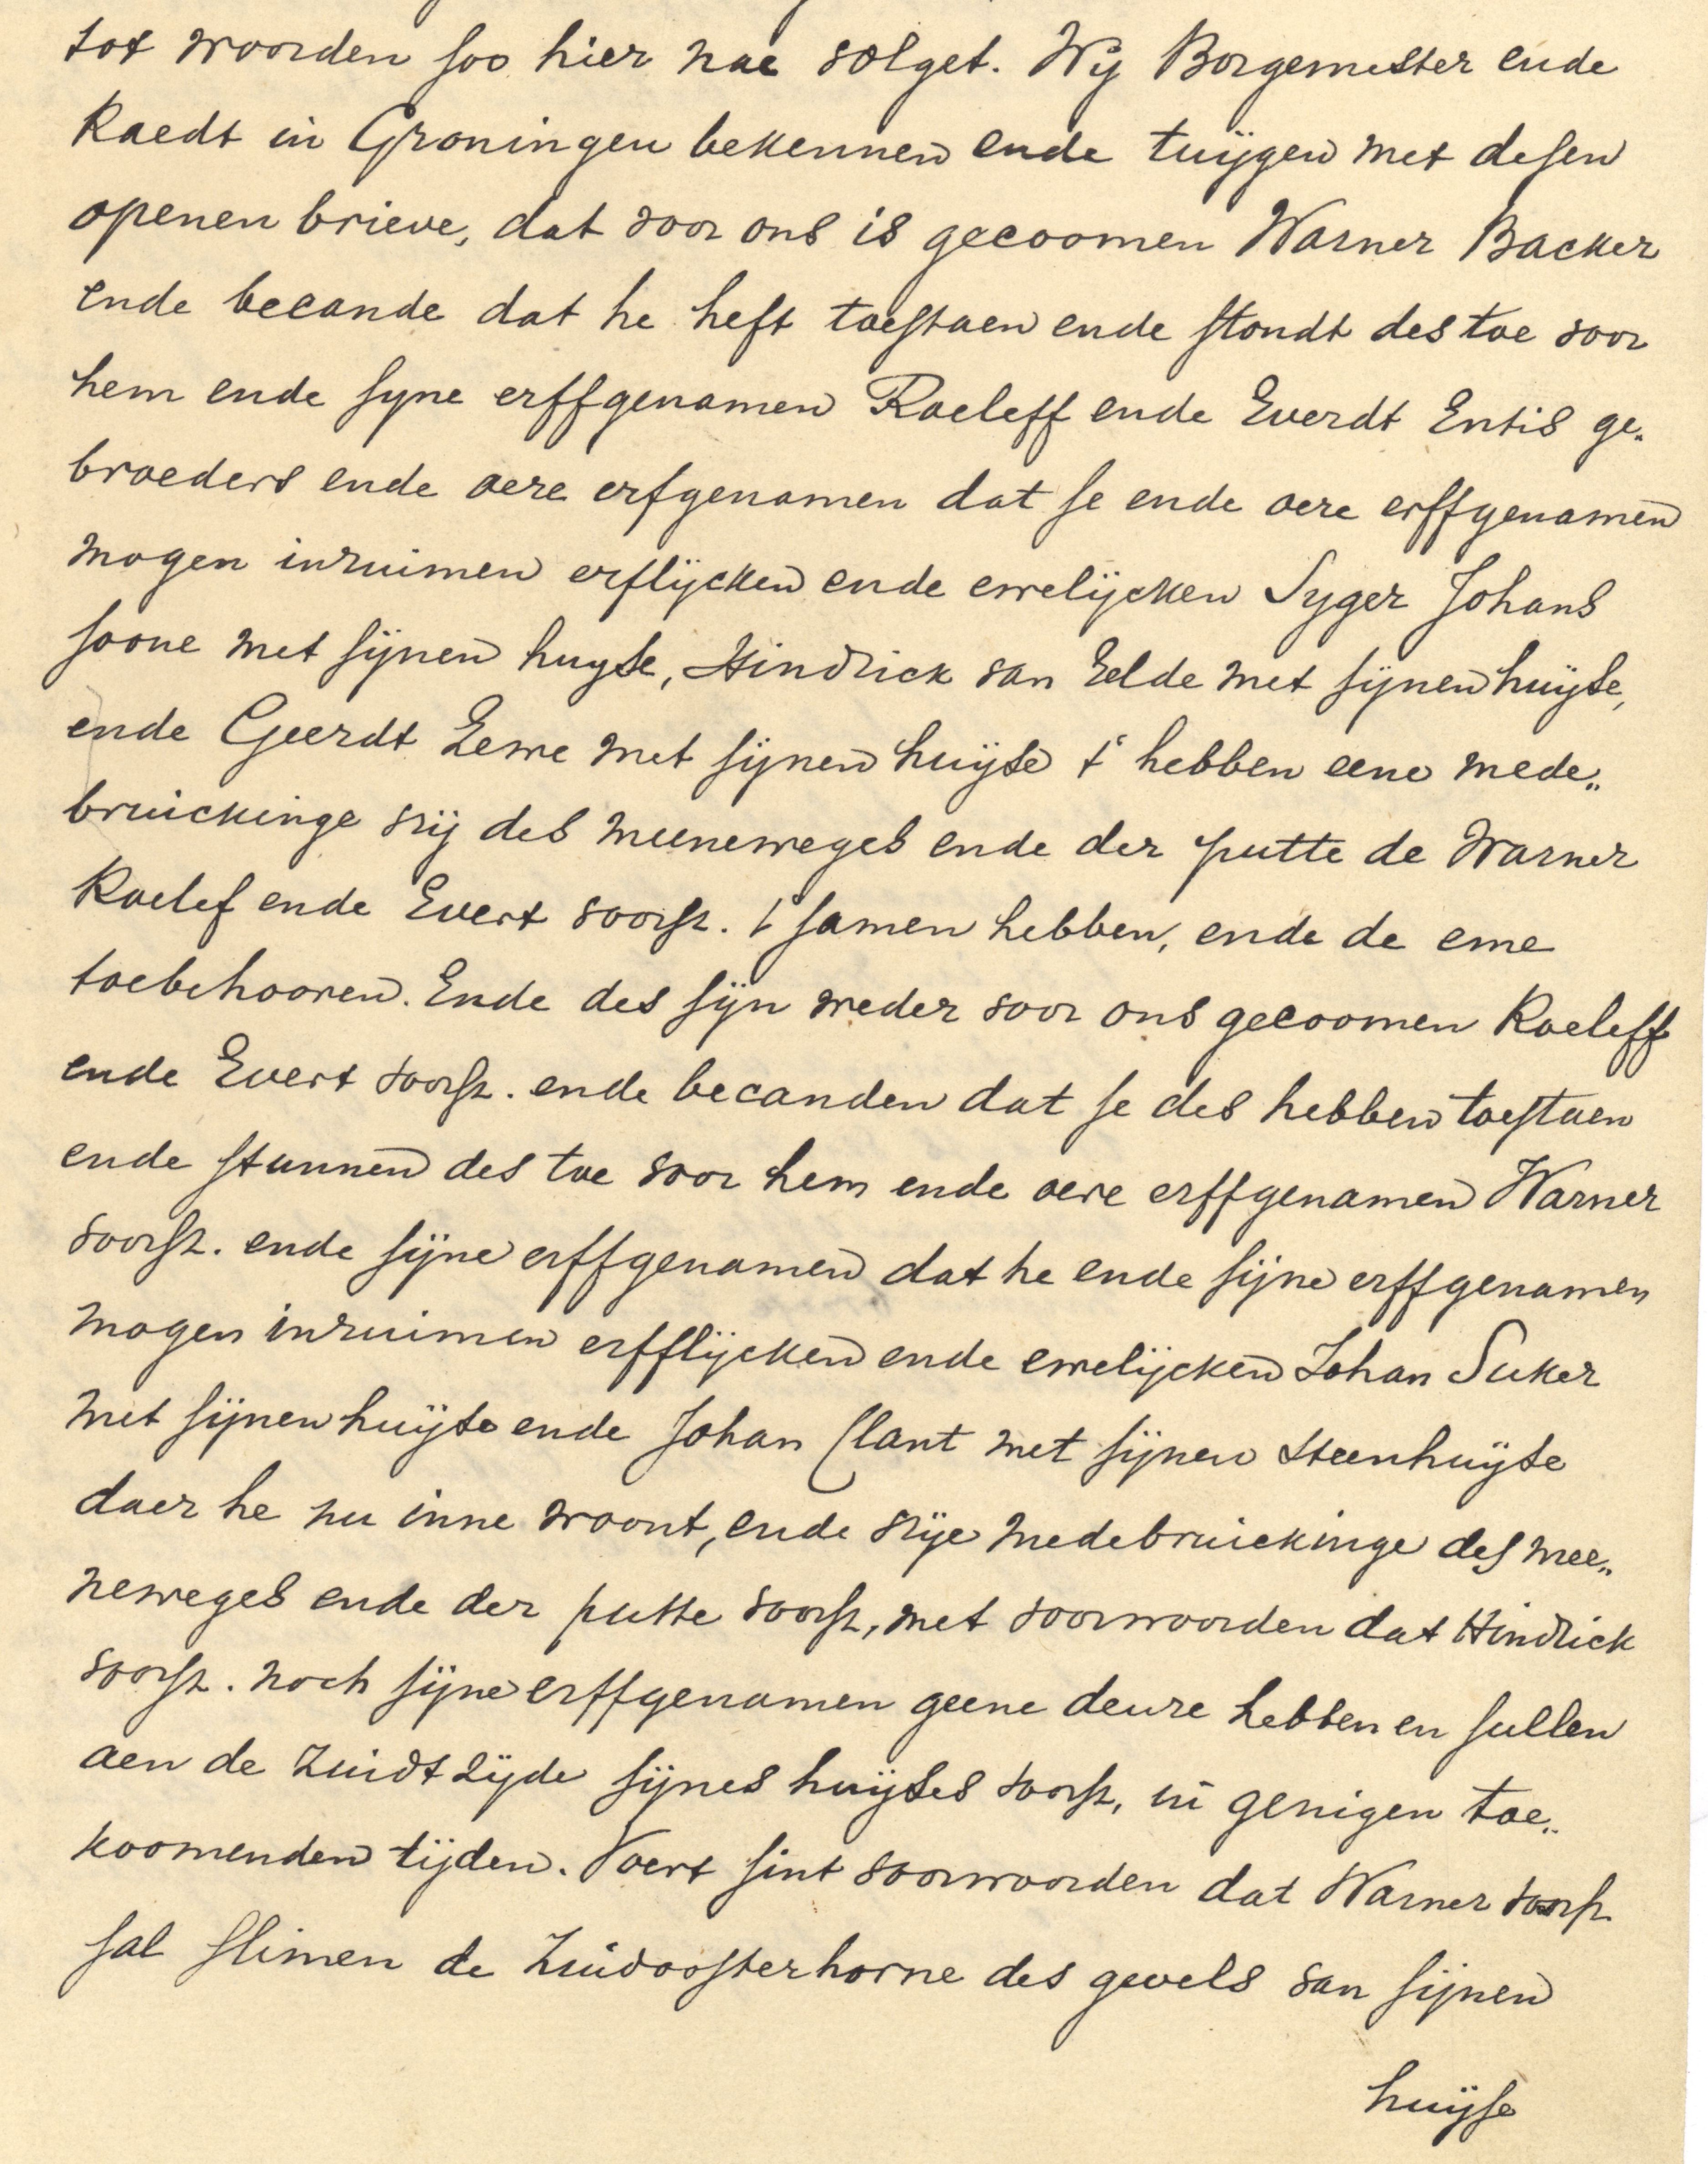 tot woorden soo hier nae volget. Wij Borgemester ende
Raedt in Groningen bekennen ende tuijgen met desen
openen brieve, dat voor ons is gecoomen Warner Backer
ende becande dat he heft toestaen ende stondt des toe voor
hem ende syne erffgenamen Roeleff ende Everdt Entis ge„
broeders ende oere erfgenamen dat se ende oere erffgenamen
mogen inruimen erflijcken ende ewelijcken Syger Johans
soone met sijnen huyse, Hindrick van Eelde met sijnen huijse,
ende Geerdt Eewe met sijnen huijse t' hebben eene mede„
bruickinge vrij des meeneweges ende der putte de Warner
Roelef ende Evert voorsz. t' samen hebben, ende de eme
toebehooren. Ende des sijn weder voor ons gecoomen Roeleff
ende Evert voorsz. ende becanden dat se des hebben toestaen
ende stunnen des toe voor hem ende oere erffgenamen Warner
voorsz. ende sijne erffgenamen dat he ende sijne erffgenamen
mogen inruimen erfflijcken ende ewelijcken Johan Suker
met sijnen huijse ende Johan Clant met sijnen steenhuijse
daer he nu inne woont, ende vrije medebruickinge des mee„
neweges ende der putte voorsz, met voorwoorden dat Hindrick
voorsz. noch sijne erffgenamen geene deure hebben en sullen
aen de Zuidt zijde sijnes huijses voorsz, in genigen toe„
koomenden tijden. Voert sint voorwoorden dat Warner voorsz
sal slimen de Zuidoosterhorne des gevels van sijnen
huijse